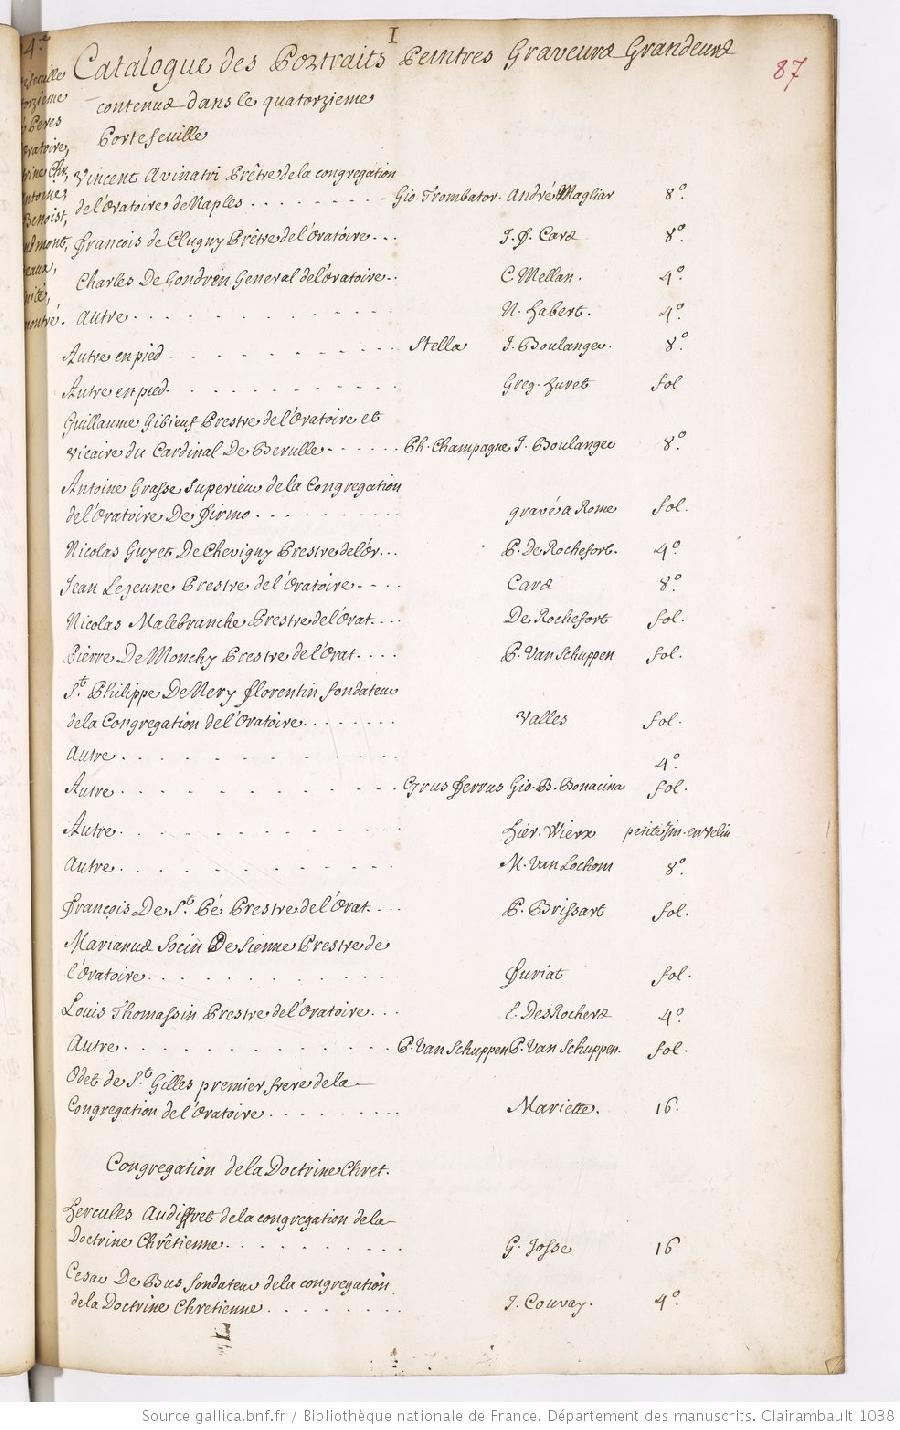 1
Catalogue des Portraits Peintres Graveurs Grandeurs
87
contenus dans le quatorzieme
Portefeuille
Vincent Avinatri Prêtre de la congregation
de l'Oratoire de Naples . . . . . . . . Gio. Trombator. André Magliar 8°.
François de Clugny Prêtre de l'Oratoire. . . J. F. Cars 8°.
Charles De Gondren General de l'Oratoire. . C. Mellan. 4°.
Autre . . . . . . . . . . N. Habert. 4°.
Autre en pied . . . . . . . . Stella J. Boulanger. 8°.
Autre en pied. . . . . . . . . Greg. huret fol
Guillaume Gibieuf Prestre de l'Oratoire et
Vicaire du Cardinal De Berulle. . . . . . Ph. Champagne J. Boulanger 8°.
Antoine Grasse Superieur de la Congregation
de l'Oratoire De Firmo . . . . . . gravé à Rome fol.
Nicolas Guyet De Chevigny Prestre de l'Or. . . P. de Rochefort. 4°.
Jean Lejeune Prestre de l'Oratoire . . . . Cars 8°.
Nicolas Malebranche Prestre de l'Orat. . . . De Rochefort fol.
Pierre De Monchy Prestre de l'Orat. . . . P. Van Schuppen fol.
St. Philippe De Nery Florentin fondateur
de la Congregation de l'Oratoire. . . . . . . Valles fol.
Autre . . . . . . . . . . 4°.
Autre . . . . . . . . . . Cyrus Ferrus Gio. B. Bonacina fol.
Autre . . . . . . . . . . hier. Wierx petite in. en velin
Autre . . . . . . . . . . M. Van Lochom 8°.
François De St. Pé Prestre de l'Orat. . . . P. Brissart fol.
Marianus Socin De Sienne Prestre de
l'Oratoire. . . . . . . . . . Duriat fol.
Louis Thomassin Prestre de l'Oratoire. . . E. Des Rochers 4°.
Autre . . . . . . . . . . P. Van Schuppen P. Van Schuppen. fol.
Odet de St. Gilles premier frere de la
Congregation de l'Oratoire. . . . . . . Mariette. 16.
Congregation de la Doctrine Chret.
Hercules Audiffret de la congregation de la
Doctrine Chrêtienne . . . . . . . . G. Josse 16
Cesar De Bus fondateur de la congregation
de la Doctrine Chretienne . . . . . . . J. Couvay. 4°.
Source gallica.bnf.fr / Bibliothèque nationale de France. Département des manuscrits. Clairambault 1038